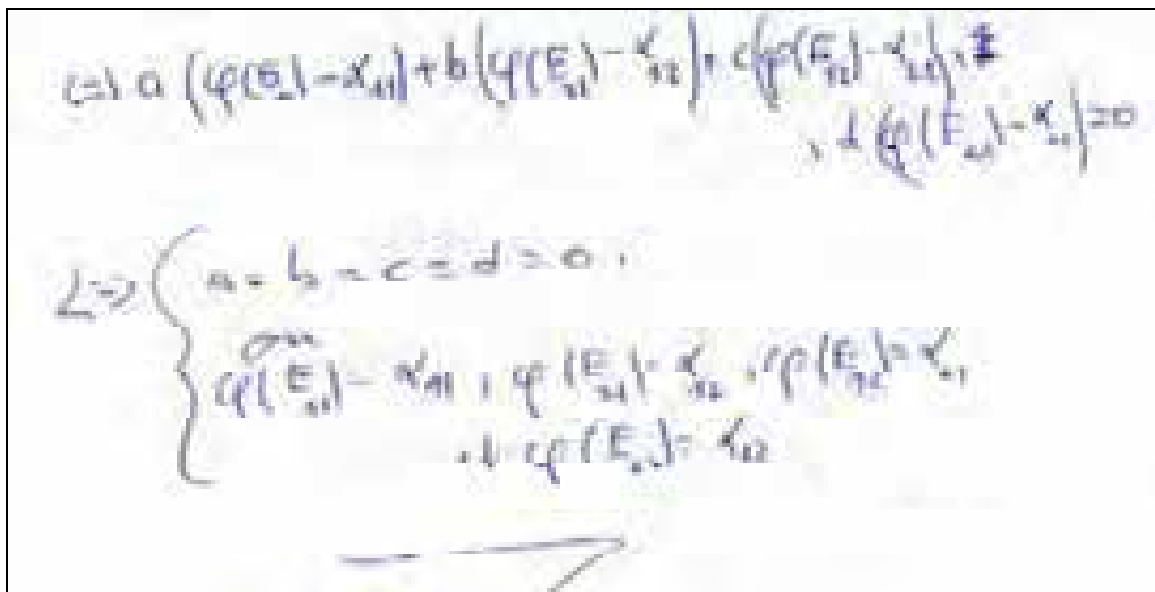 (=) a (φ(E) - α₁₁) + b(φ(E₂₁) - α₁₂) + c(φ(E₁₂) - α₂₁) +
+ d (φ(E) - α) = 0
<=> { a = b = c = d = 0 .
ou
φ(E₁₁) = α₁₁ , φ(E₂₁) = α₁₂ , φ(E₁₂) = α₂₁
et φ(E) = α₂₂